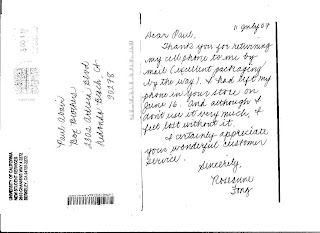 11 July 07
Dear Paul,
Thank you for returning
my cell phone to me by
mail (excellent packaging
by the way). I had left my
phone in your store on
June 16. And although I
don't use it very much, I
feel lost without it.
I certainly appreciate
your wonderful customer
service.
Sincerely,
Roseanne
Fong
Paul Adair
Boz Brothers
2302 Artesia Blvd
Redondo Beach CA
90278
UNIVERSITY OF CALIFORNIA